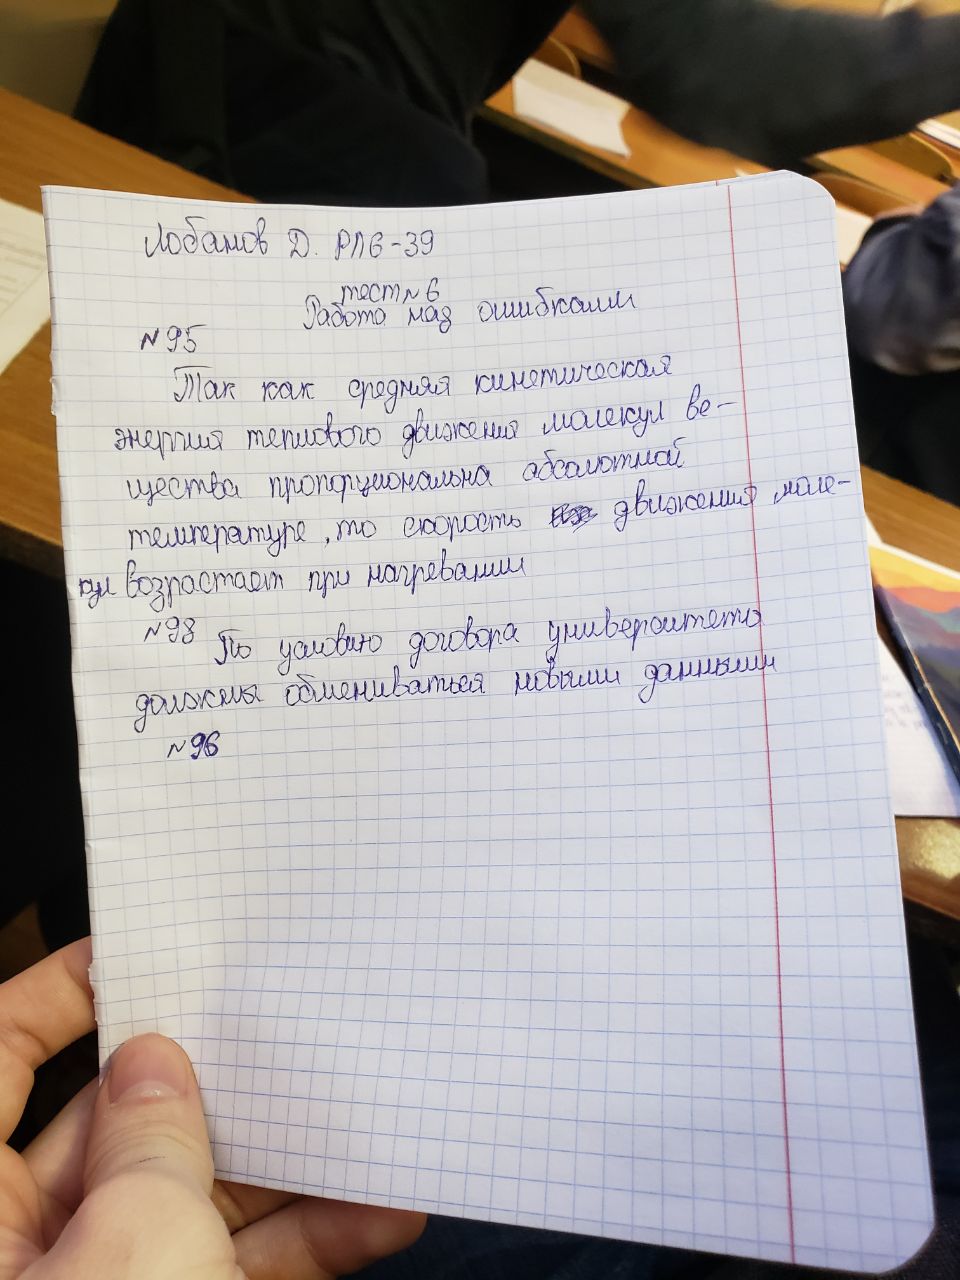 Лобанов Д. РЛ6-39
тест№6
Работа над ошибками
№95
Так как средняя кинетическая
энергия теплового движения молекул ве-
щества пропорциональна абсолютной
температуре, то скорость движения моле-
кул возрастает при нагревании
№98
По условию договора университеты
должны обмениваться новыми данными
№96